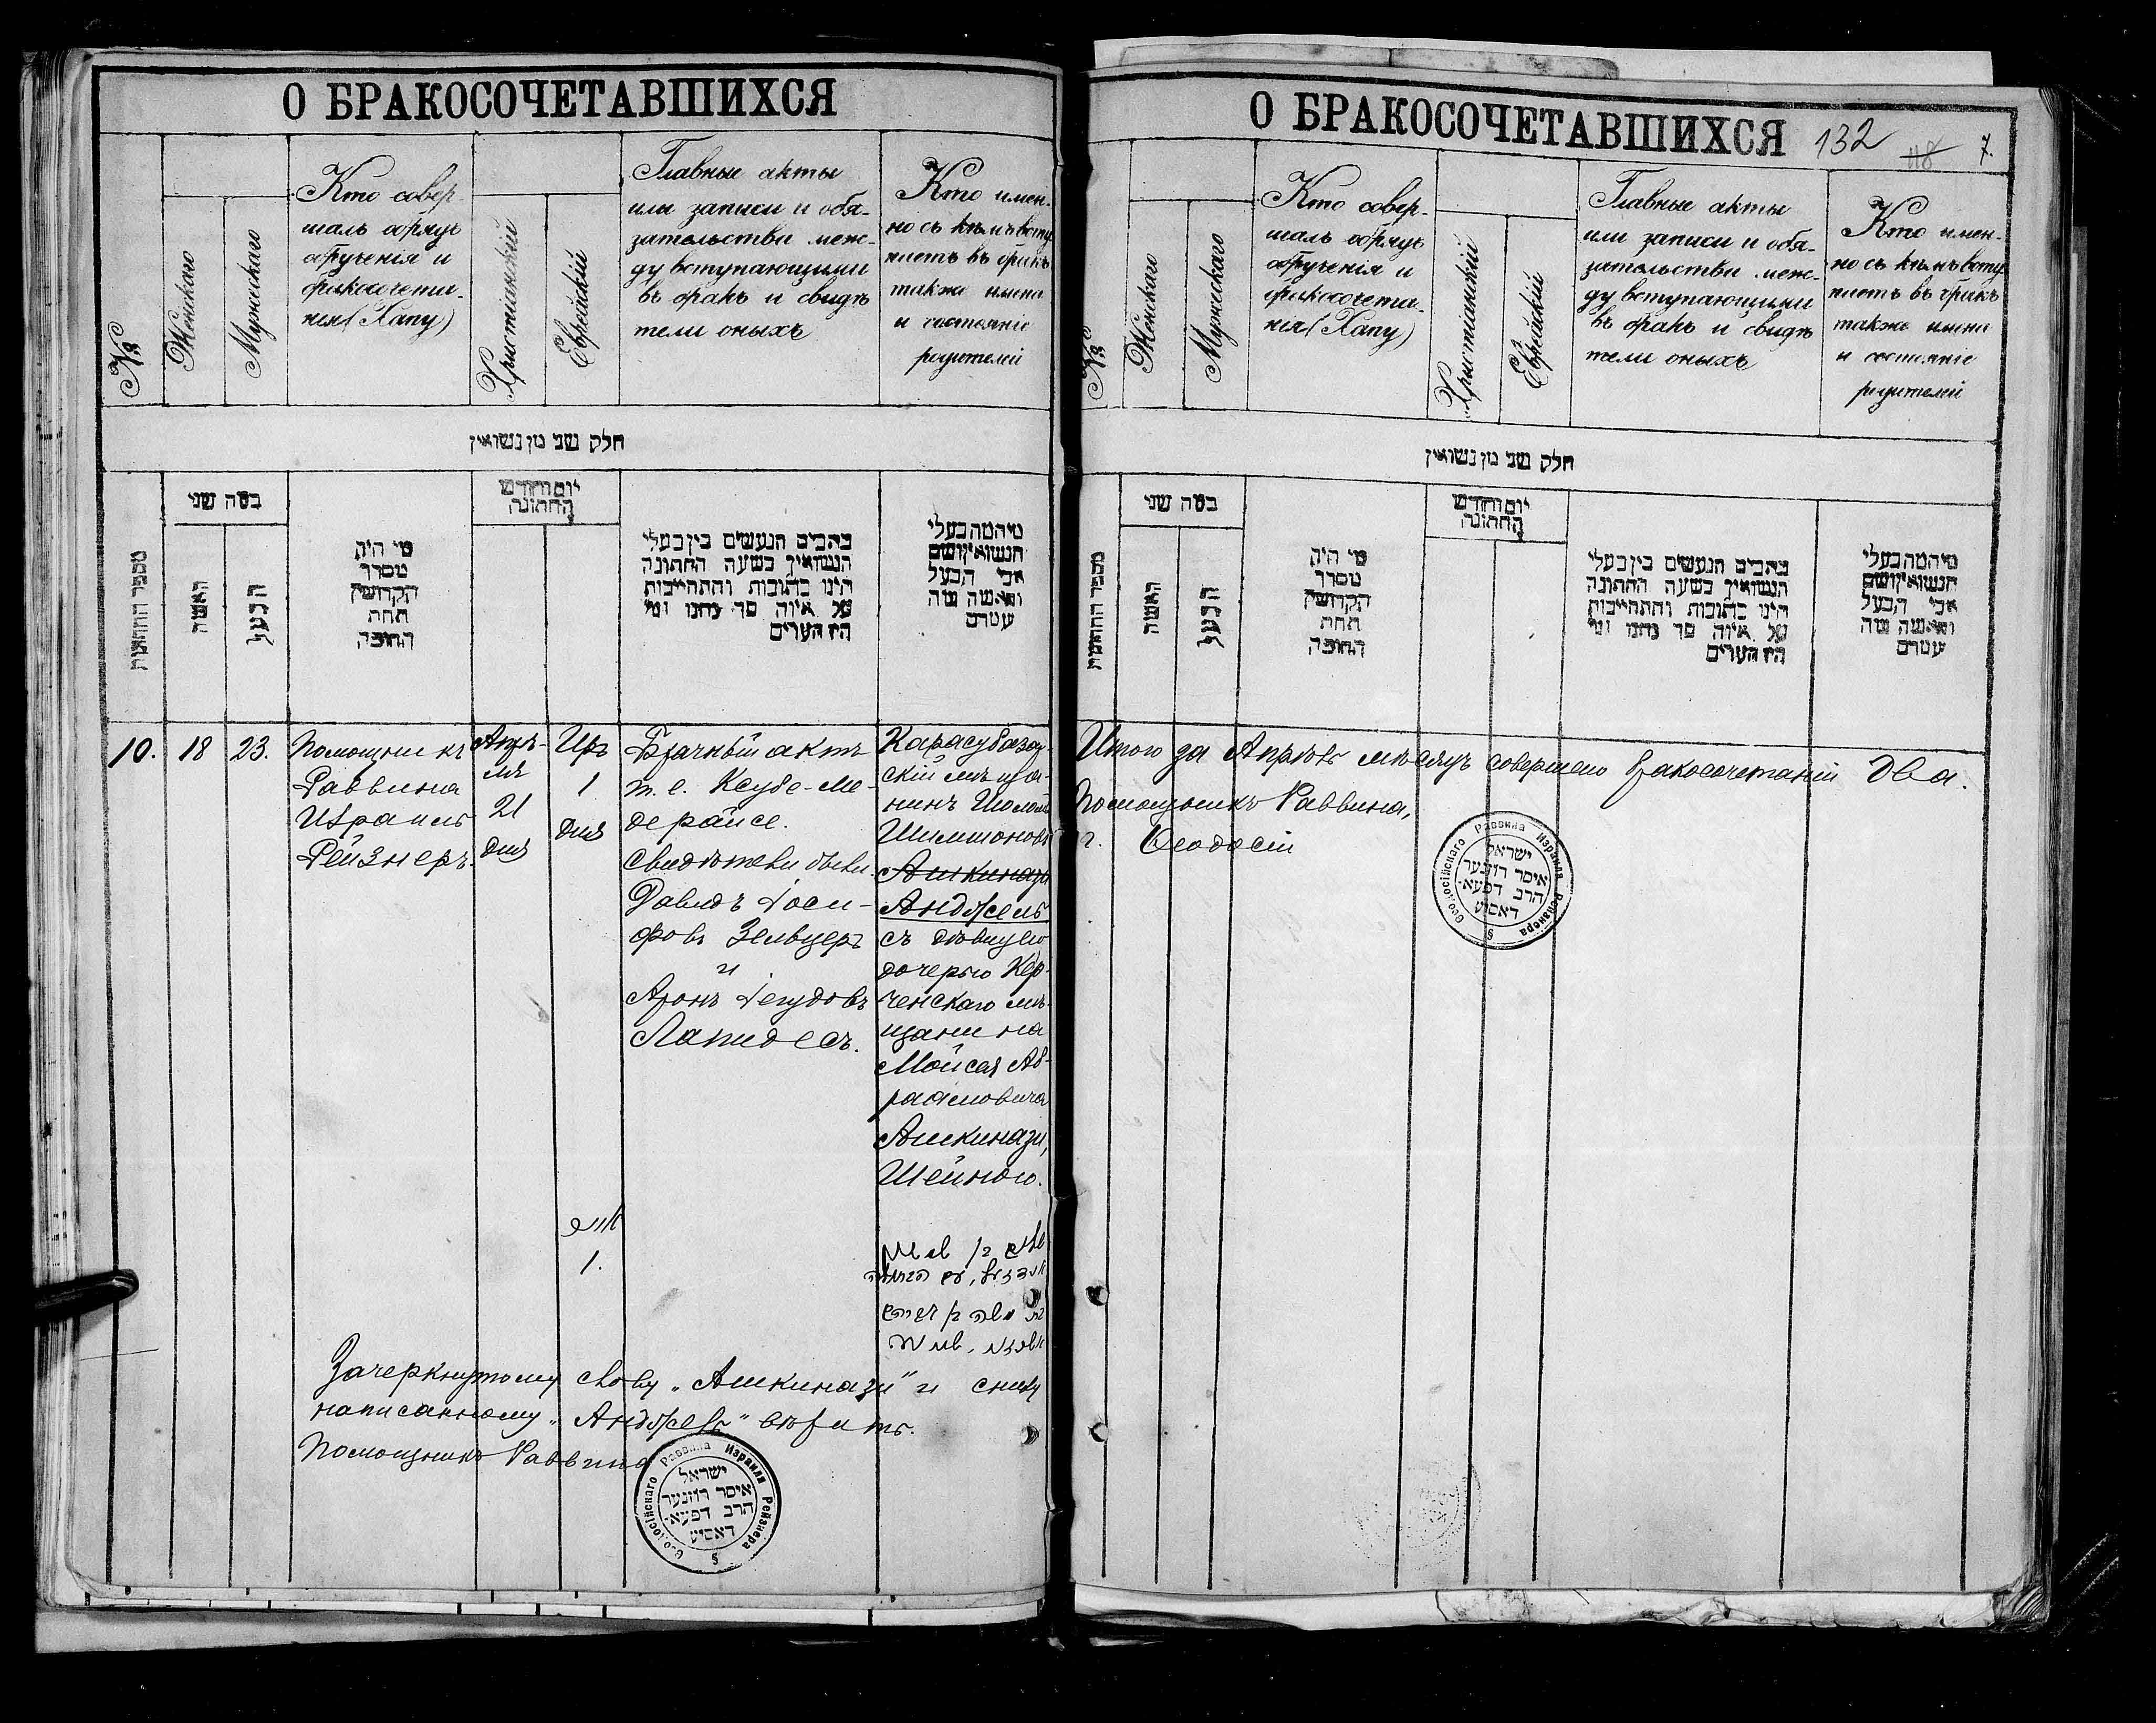 О БРАКОСОЧЕТАВШИХСЯ
№
Женскаго
Мужескаго
Кто совер-
шалъ обрядъ
обрученія и
бракосочета-
нія (Хапу)
Христіанскій
Еврейскій
Главные акты
или записи и обя-
зательства меж-
ду вступающими
въ бракъ и свидѣ
тели оныхъ
Кто имен-
но съ кѣмъ всту-
паетъ въ бракъ
также имена
и состояніе
родителей
חלק שני מן נשואין
מספר החתונות
כמה שני
האשה
הבעל
מי היה
מסדר
הקדושין
תחת
החופה
יום וחודש
החתונה
כתבים הנעשים בין בעלי
הנשואין בשעה החתונה
היינו כתובות והתחייבות
על איזה סך נתנו ומי
היו העדים
מי המה בעלי
הנשואין ושם
אבי הבעל
והאשה
10.
18
23.
Помощникъ
Раввина
Израиль
Рейзнеръ.
Апрѣ-
ля
21
дня
Иръ
1
дня
Брачный актъ
т. е. Ксубе-Ме-
дерайсе.
Свидѣтели были
Давидъ Іоси-
фовъ Зельцеръ
и
Аронъ Іегудовъ
Лапидесъ.
Карасубазар-
скій мѣща-
нинъ Шоломъ
Шимшоновъ
Ашкинази
Анджель
съ дѣвицею
дочерью Кер-
ченскаго мѣ-
щанина
Мойсея Аб-
рамовича
Ашкинази,
Шейною.
אייר
1.
Зачеркнутому слову „Ашкинази" и снизу
написанному „Анджель" вѣрить.
Помощникъ Раввина
Ѳеодосійскаго Раввина Израиля Рейзнера
ישראל
איסר רייזנער
הרב דפעא-
דאסיע
О БРАКОСОЧЕТАВШИХСЯ
132
118
7.
№
Женскаго
Мужескаго
Кто совер-
шалъ обрядъ
обрученія и
бракосочета-
нія (Хапу)
Христіанскій
Еврейскій
Главные акты
или записи и обя-
зательства меж-
ду вступающими
въ бракъ и свидѣ
тели оныхъ
Кто имен-
но съ кѣмъ всту-
паетъ въ бракъ
также имена
и состояніе
родителей
חלק שני מן נשואין
מספר החתונות
כמה שני
האשה
הבעל
מי היה
מסדר
הקדושין
תחת
החופה
יום וחודש
החתונה
כתבים הנעשים בין בעלי
הנשואין בשעה החתונה
היינו כתובות והתחייבות
על איזה סך נתנו ומי
היו העדים
מי המה בעלי
הנשואין ושם
אבי הבעל
והאשה
Итого за Апрѣль мѣсяцъ совершено бракосочетаній два.
Помощникъ Раввина,
г. Ѳеодосіи
Ѳеодосійскаго Раввина Израиля Рейзнера
ישראל
איסר רייזנער
הרב דפעא-
דאסיע